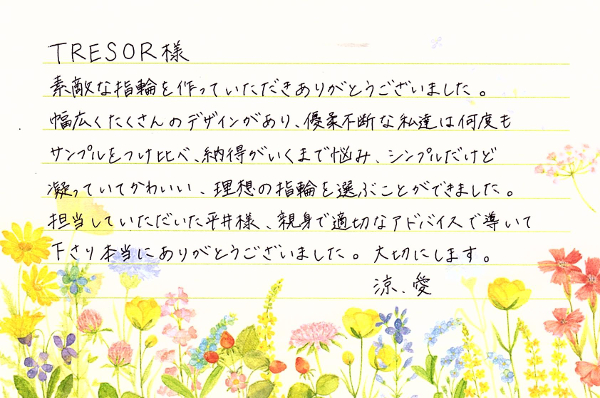 TRESOR様
素敵な指輪を作っていただきありがとうございました。
幅広くたくさんのデザインがあり、優柔不断な私達は何度も
サンプルをつけ比べ、納得がいくまで悩み、シンプルだけど
凝っていてかわいい、理想の指輪を選ぶことができました。
担当していただいた平井様、親身で適切なアドバイスで導いて
下さり本当にありがとうございました。大切にします。
涼、愛